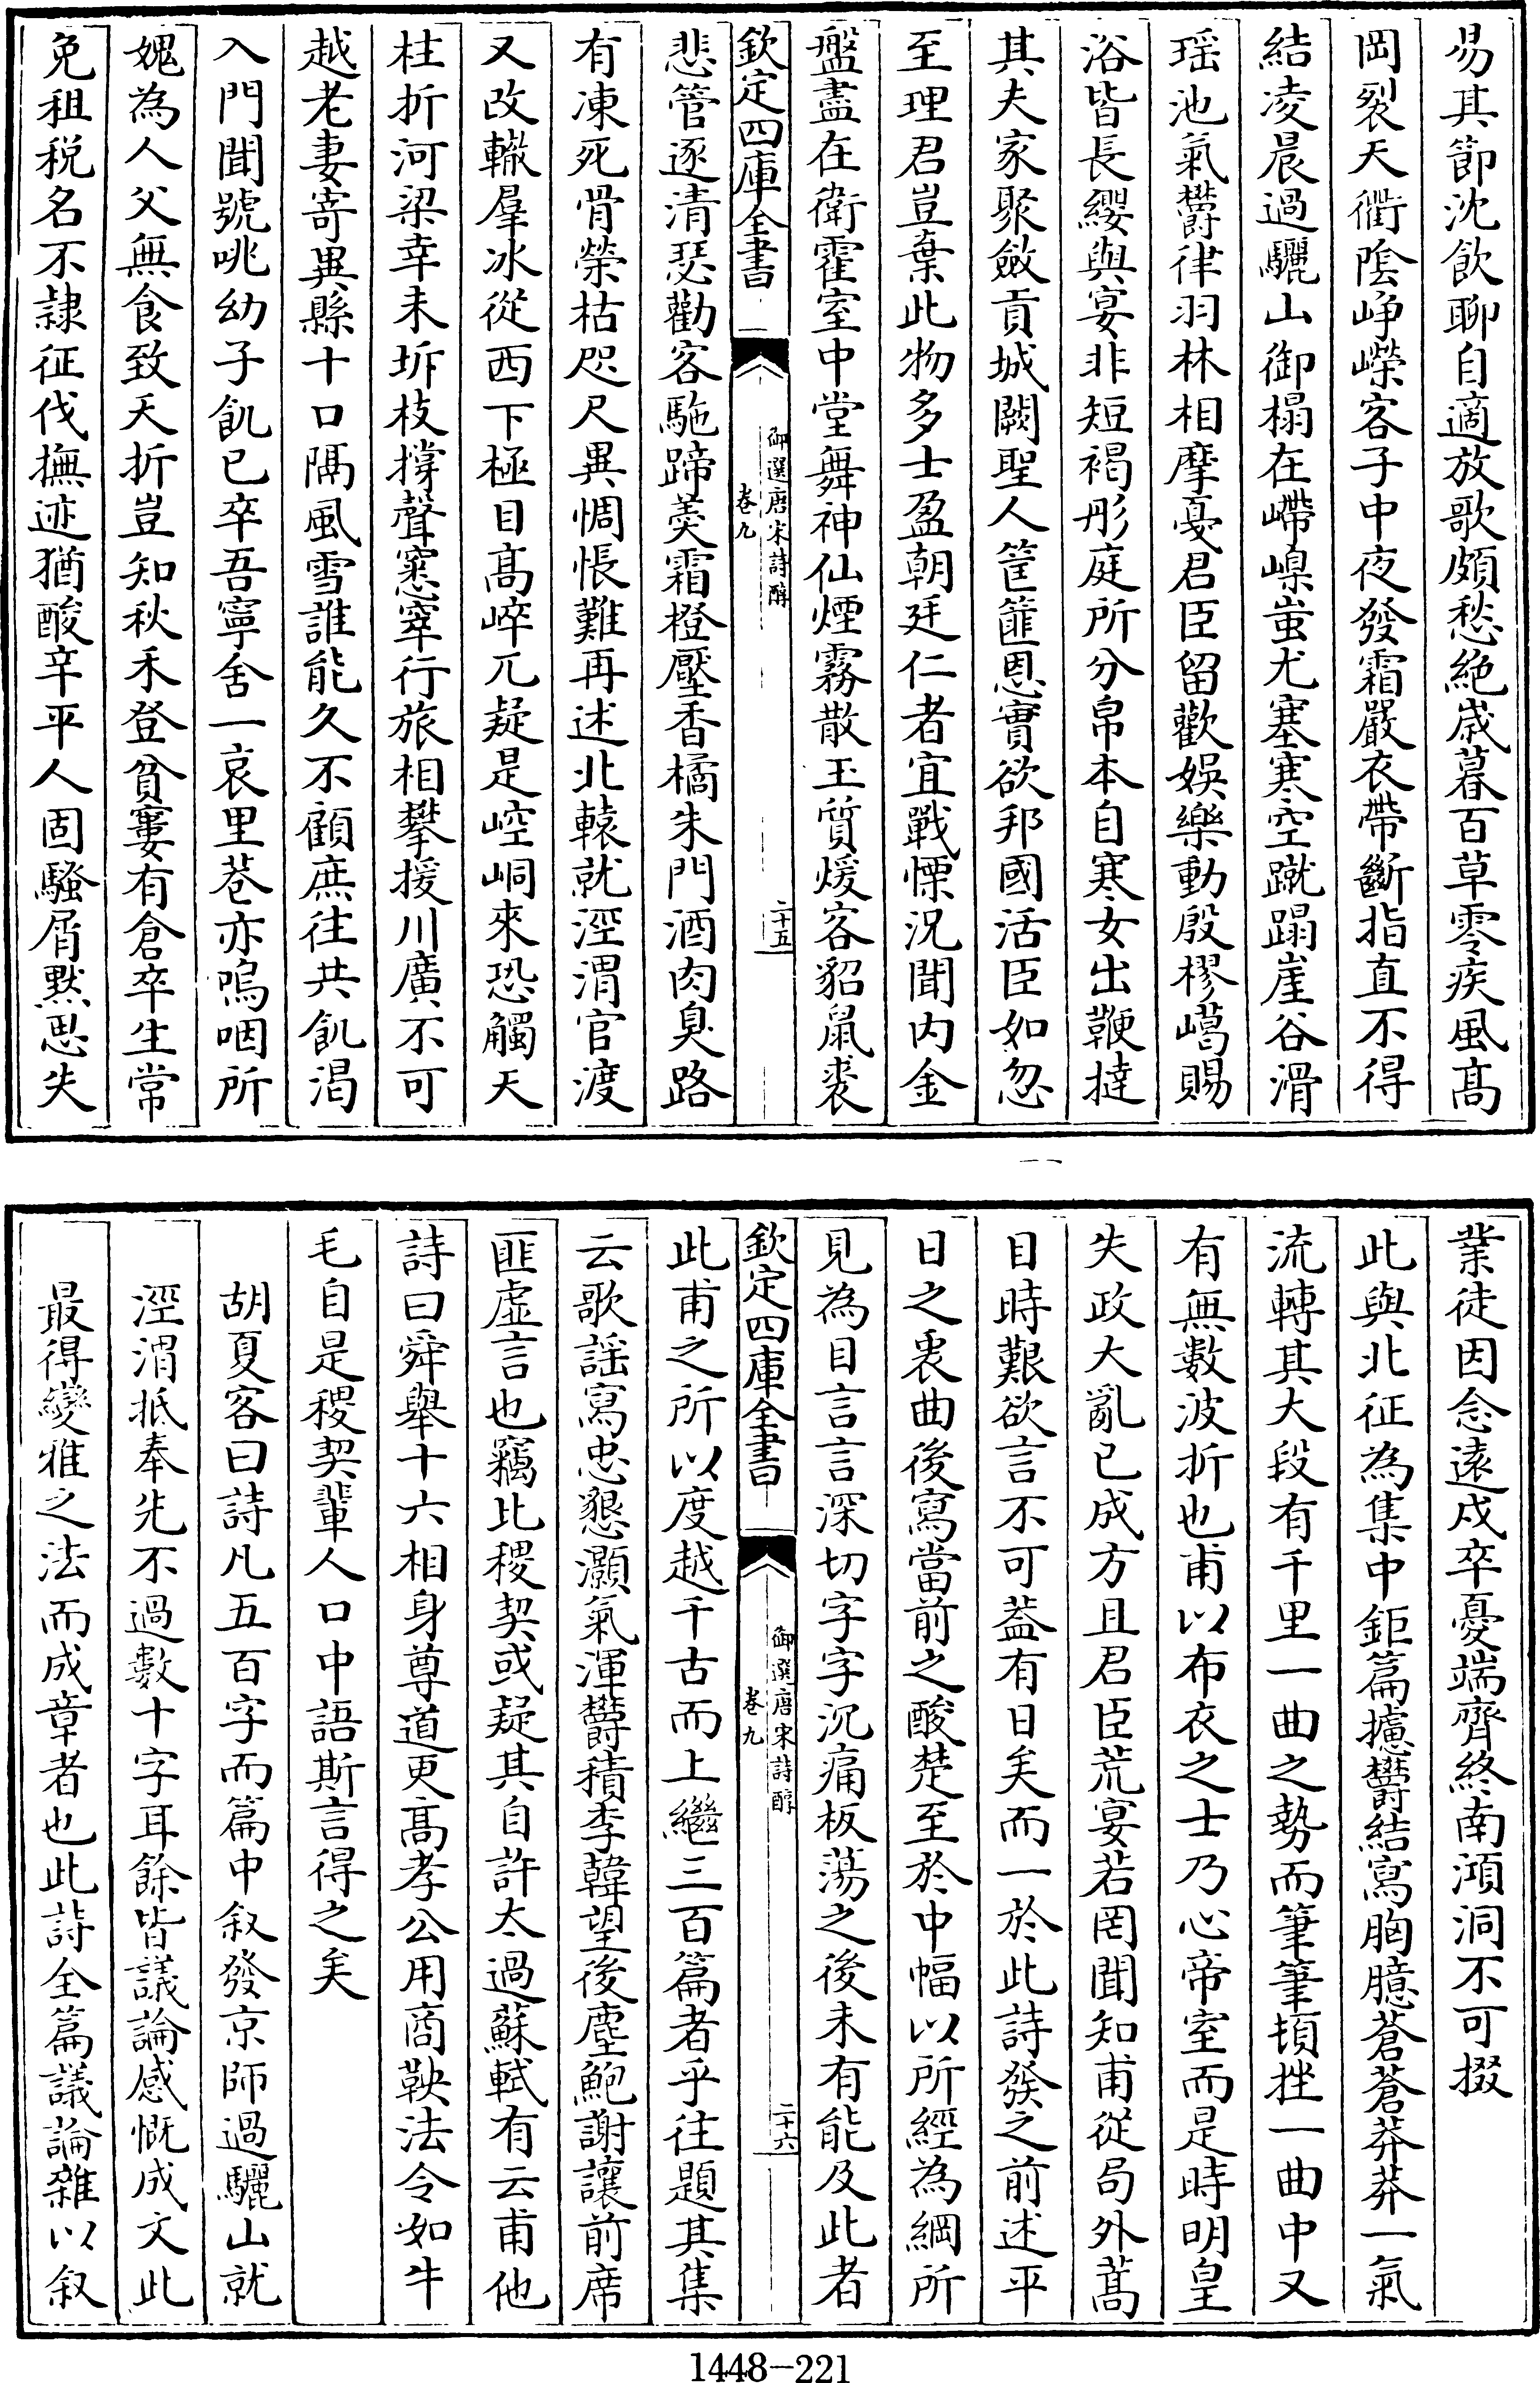 易其節沈飲聊自適放歌頗愁絶歲暮百草零疾風髙
岡裂天衢隂峥嶸客子中夜發霜嚴衣帶斷指直不得
結凌晨過驪山御榻在㟴嵲蚩尤塞寒空蹴蹋崖谷滑
瑶池氣欝律羽林相摩戞君臣留歡娯樂動殷樛嶱賜
浴皆長纓與宴非短褐彤庭所分帛本自寒女出鞭撻
其夫家聚斂貢城闕聖人筐篚恩實欲邦國活臣如忽
至理君豈棄此物多士盈朝廷仁者宜戰慄況聞内金
盤盡在衛霍室中堂舞神仙煙霧散玉質煖客貂鼠裘
欽定四庫全書
御選唐宋詩醇
卷九
二十五
悲管逐清瑟勸客駞蹄羮霜橙壓香橘朱門酒肉臭路
有凍死骨榮枯咫尺異惆悵難再述北轅就涇渭官渡
又改轍羣氷從西下極目髙崒兀疑是崆峒來恐觸天
柱折河梁幸未坼枝撐聲窸窣行旅相攀援川廣不可
越老妻寄異縣十口隔風雪誰能久不顧庶往共飢渴
入門聞號咷幼子飢已卒吾寧舍一哀里巷亦嗚咽所
媿為人父無食致夭折豈知秋禾登貧窶有倉卒生常
免租稅名不隷征伐撫迹猶酸辛平人固騷屑黙思失
業徒因念遠戍卒憂端齊終南澒洞不可掇
此與北征為集中鉅篇攄欝結寫胸臆蒼蒼莽莽一氣
流轉其大段有千里一曲之勢而筆筆頓挫一曲中又
有無數波折也甫以布衣之士乃心帝室而是時明皇
失政大亂已成方且君臣荒宴若罔聞知甫從局外蒿
目時艱欲言不可葢有日矣而一於此詩發之前述平
日之衷曲後寫當前之酸楚至於中幅以所經為綱所
見為目言言深切字字沉痛板蕩之後未有能及此者
欽定四庫全書
御選唐宋詩醇
卷九
二十六
此甫之所以度越千古而上繼三百篇者乎往題其集
云歌謡寫忠懇灝氣渾欝積李韓望後塵鮑謝讓前席
匪虛言也竊比稷契或疑其自許太過蘇軾有云甫他
詩曰舜舉十六相身尊道更髙孝公用商鞅法令如牛
毛自是稷契輩人口中語斯言得之矣
胡夏客曰詩凡五百字而篇中叙發京師過驪山就
涇渭抵奉先不過數十字耳餘皆議論感慨成文此
最得變雅之法而成章者也此詩全篇議論雜以叙
1448-221